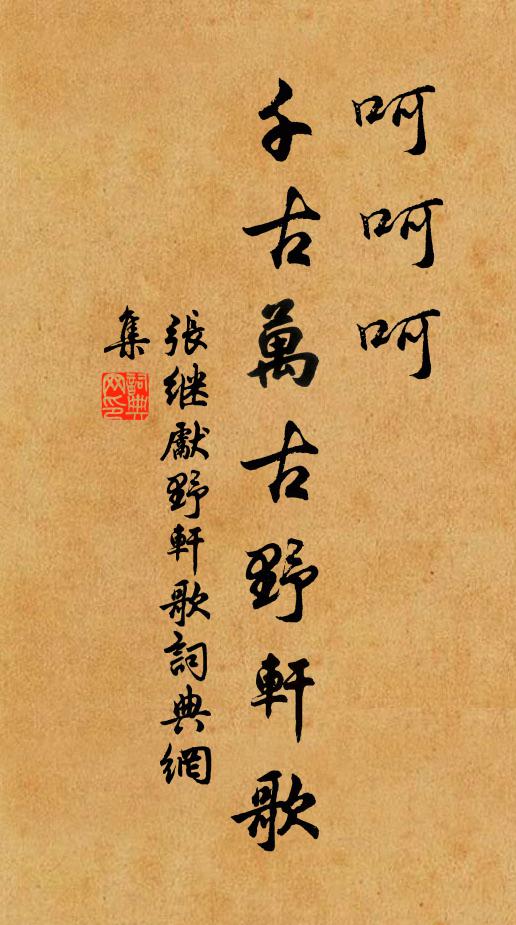 呵呵呵
千古萬古野軒歌
張继獻野軒歌詞典網
集
詞典
网印